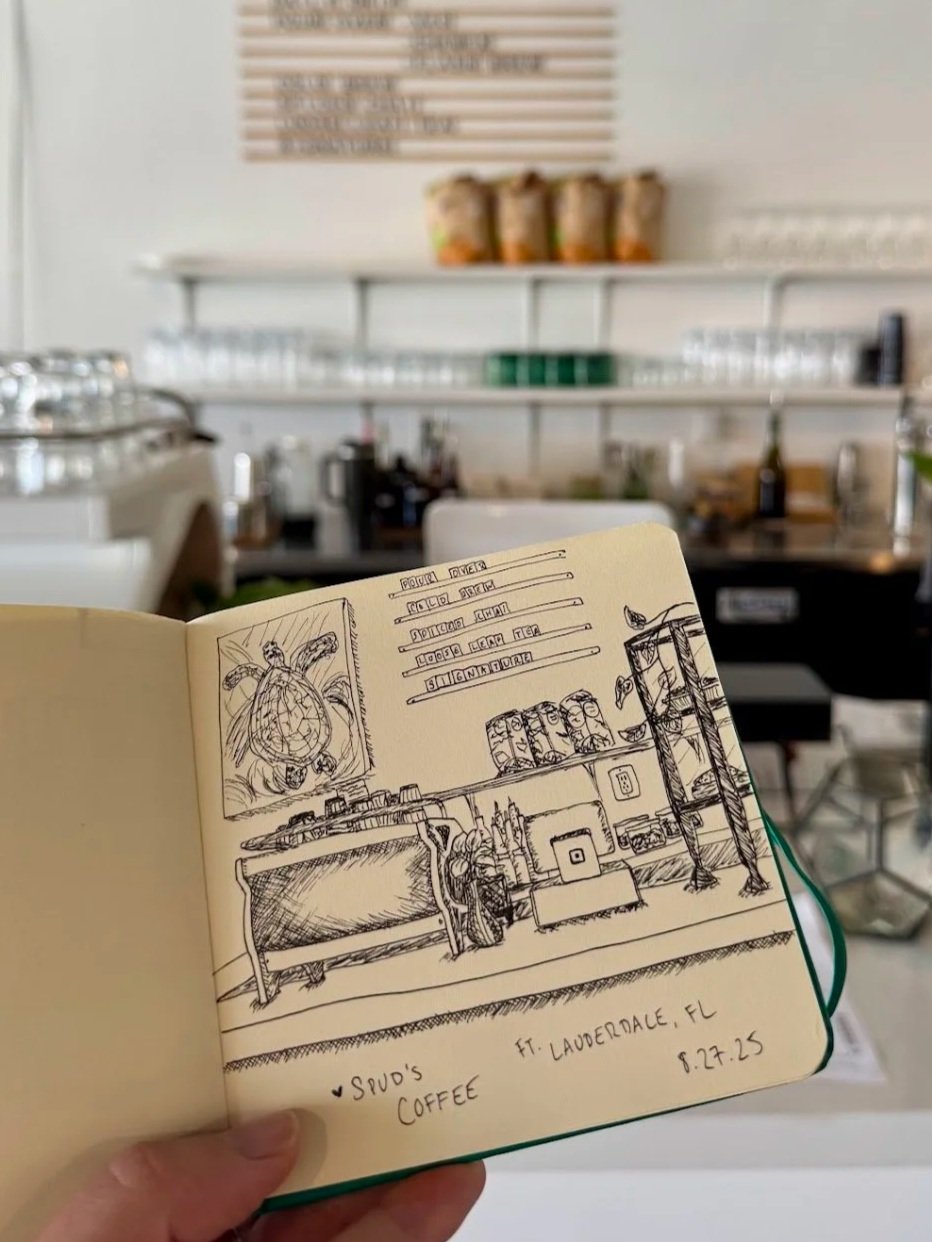 POUR OVER
COLD BREW
SPICED CHAI
LOOSE LEAF TEA
SIGNATURE
♥ SPUD'S
COFFEE
FT. LAUDERDALE, FL
8.27.25